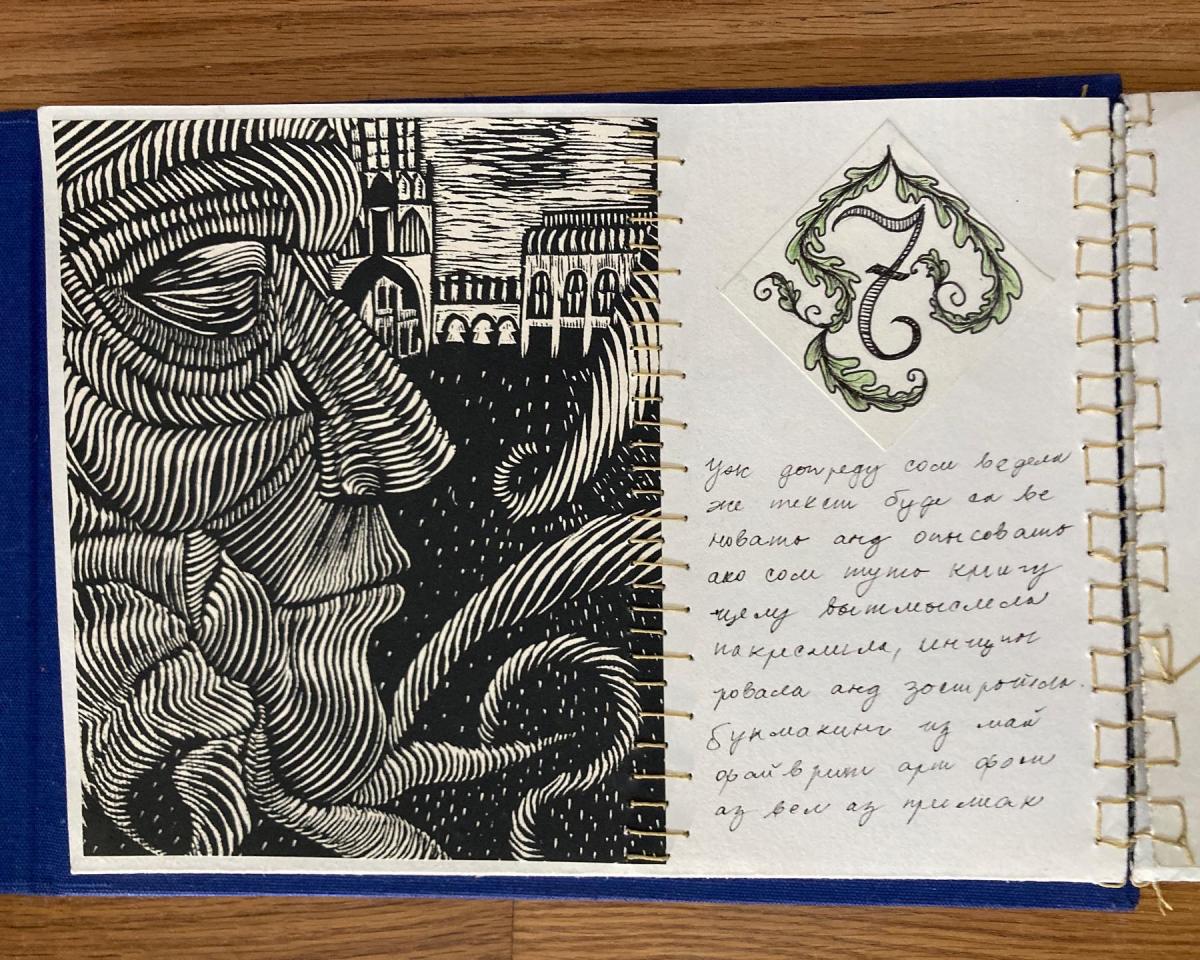 7
Уж допреду сом ведела
же текст буде са ве
новать анд описовать
ако сом туто книгу
целу вытмыслела
накреслила,
ровала анд зостройела.
букмакинг из май
файврит арт форм
аз вел аз принмак